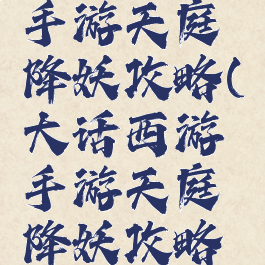 手游天庭
降妖攻略(
大话西游
手游天庭
降妖攻略